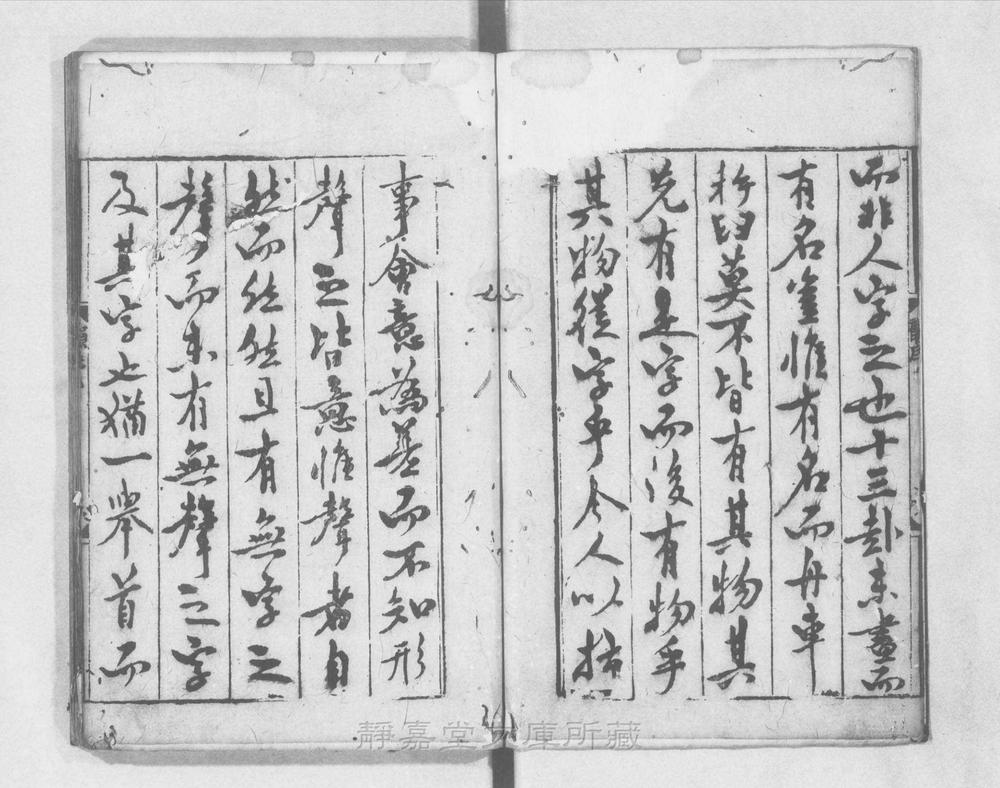 而非人字之也十三卦未畫而
有名室惟有名而舟車
杵臼莫不皆有其物其
先有是字而後有物乎
其物從字乎今人以指
事會意為差而不知形
聲之皆意惟聲者自
然而然然且有無字之
聲而未有無聲之字
及其字也猶一舉首而
靜嘉堂文庫所藏